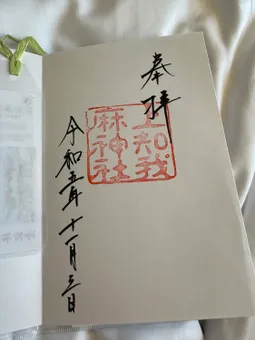 奉拝
上知我
麻神社
令和五年十一月三日